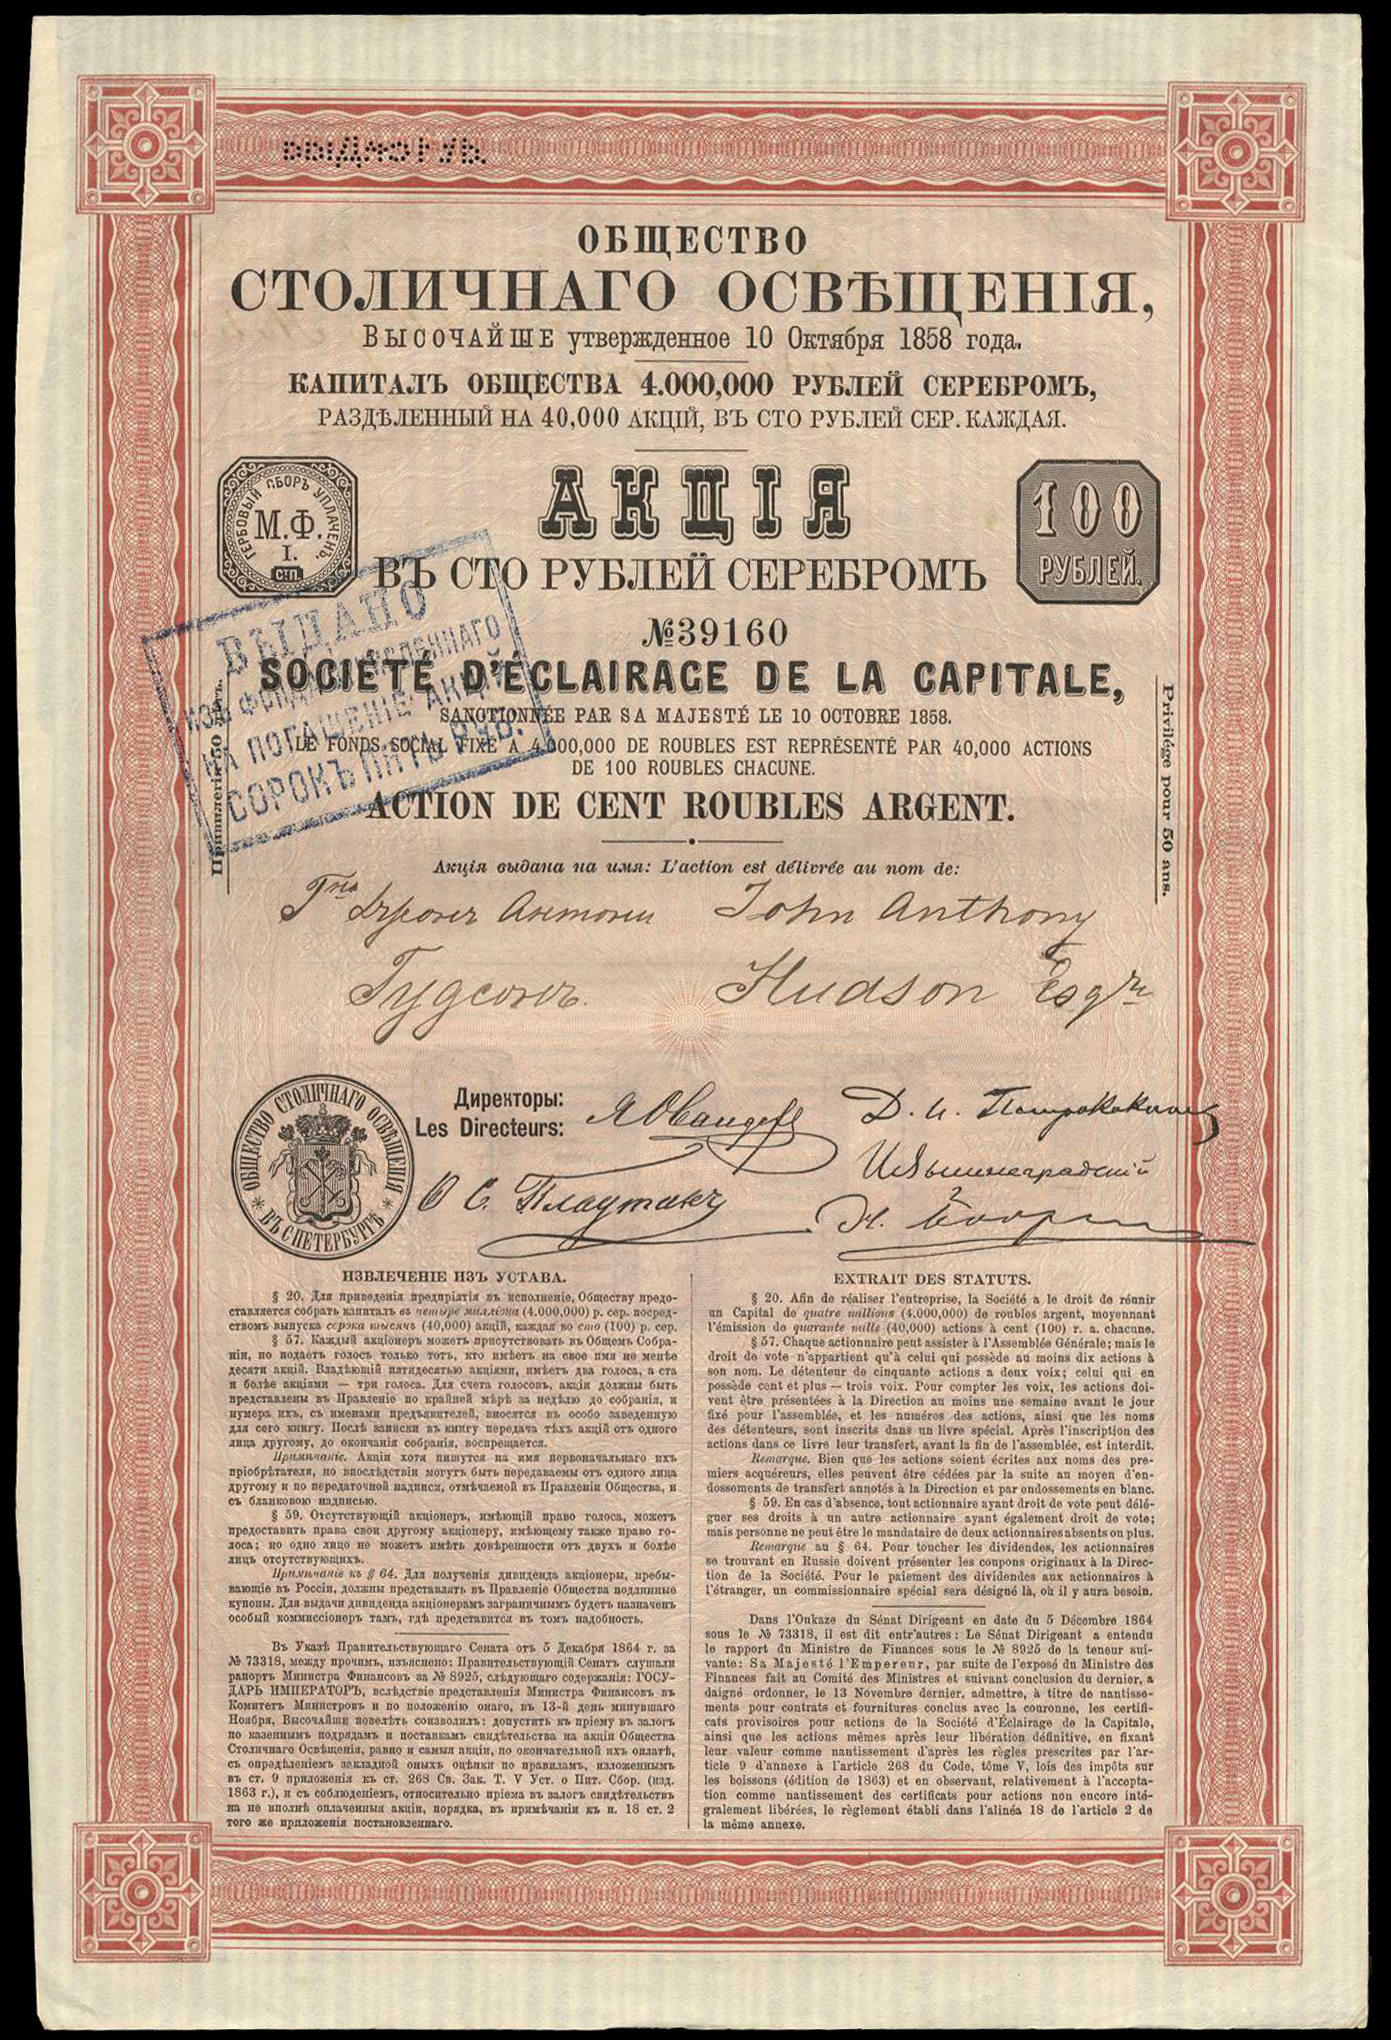 ОБЩЕСТВО
СТОЛИЧНАГО ОСВѢЩЕНІЯ,
ВЫСОЧАЙШЕ утвержденное 10 Октября 1858 года.
КАПИТАЛЪ ОБЩЕСТВА 4.000,000 РУБЛЕЙ СЕРЕБРОМЪ,
РАЗДѢЛЕННЫЙ НА 40,000 АКЦІЙ, ВЪ СТО РУБЛЕЙ СЕР. КАЖДАЯ.
ГЕРБОВЫЙ СБОРЪ УПЛАЧЕНЪ.
М.Ф.
I.
С·П.
АКЦІЯ
100
РУБЛЕЙ.
ВЪ СТО РУБЛЕЙ СЕРЕБРОМЪ
№39160
ВЫДАНО
НА ПОГАШЕНІЕ АКЦІЙ
СОРОКЪ ПЯТЬ РУБ.
SOCIÉTÉ D'ÉCLAIRAGE DE LA CAPITALE,
SANCTIONNÉE PAR SA MAJESTÉ LE 10 OCTOBRE 1858.
LE FONDS SOCIAL FIXÉ A 4,000,000 DE ROUBLES EST REPRÉSENTÉ PAR 40,000 ACTIONS
DE 100 ROUBLES CHACUNE.
ACTION DE CENT ROUBLES ARGENT.
Привилегія 50 лѣтъ.
Privilége pour 50 ans.
Акція выдана на имя: L'action est délivrée au nom de:
Гна Джонъ Антони John Anthony
Гудсонъ. Hudson Esqre
ОБЩЕСТВО СТОЛИЧНАГО ОСВѢЩЕНІЯ
ВЪ С ПЕТЕРБУРГѢ
Директоры:
Les Directeurs:
ИЗВЛЕЧЕНІЕ ИЗЪ УСТАВА.
§ 20. Для приведенія предпріятія въ исполненіе, Обществу предо-
ставляется собрать капиталъ въ четыре милліона (4.000,000) р. сер. посред-
ствомъ выпуска сорока тысячъ (40,000) акцій, каждая во сто (100) р. сер.
§ 57. Каждый акціонеръ можетъ присутствовать въ Общемъ Собра-
ніи, но подаетъ голосъ только тотъ, кто имѣетъ на свое имя не менѣе
десяти акцій. Владѣющій пятидесятью акціями, имѣетъ два голоса, а ста
и болѣе акціями — три голоса. Для счета голосовъ, акціи должны быть
представлены въ Правленіе по крайней мѣрѣ за недѣлю до собранія, и
нумера ихъ, съ именами предъявителей, вносятся въ особо заведенную
для сего книгу. Послѣ записки въ книгу передача тѣхъ акцій отъ одного
лица другому, до окончанія собранія, воспрещается.
Примѣчаніе. Акціи хотя пишутся на имя первоначальнаго ихъ
пріобрѣтателя, но впослѣдствіи могутъ быть передаваемы отъ одного лица
другому и по передаточной надписи, отмѣчаемой въ Правленіи Общества, и
съ бланковою надписью.
§ 59. Отсутствующій акціонеръ, имѣющій право голоса, можетъ
предоставить права свои другому акціонеру, имѣющему также право го-
лоса; но одно лицо не можетъ имѣть довѣренности отъ двухъ и болѣе
лицъ отсутствующихъ.
Примѣчаніе къ § 64. Для полученія дивиденда акціонеры, пребы-
вающіе въ Россіи, должны представлять въ Правленіе Общества подлинные
купоны. Для выдачи дивиденда акціонерамъ заграничнымъ будетъ назначенъ
особый коммиссіонеръ тамъ, гдѣ представится въ томъ надобность.
Въ Указѣ Правительствующаго Сената отъ 5 Декабря 1864 г. за
№ 73318, между прочимъ, изъяснено: Правительствующій Сенатъ слушали
рапортъ Министра Финансовъ за № 8925, слѣдующаго содержанія: ГОСУ-
ДАРЬ ИМПЕРАТОРЪ, вслѣдствіе представленія Министра Финансовъ въ
Комитетъ Министровъ и по положенію онаго, въ 13-й день минувшаго
Ноября, Высочайше повелѣть соизволилъ: допустить къ пріему въ залогъ
по казеннымъ подрядамъ и поставкамъ свидѣтельства на акціи Общества
Столичнаго Освѣщенія, равно и самыя акціи, по окончательной ихъ оплатѣ,
съ опредѣленіемъ закладной оныхъ оцѣнки по правиламъ, изложеннымъ
въ ст. 9 приложенія къ ст. 268 Св. Зак. Т. V Уст. о Пит. Сбор. (изд.
1863 г.), и съ соблюденіемъ, относительно пріема въ залогъ свидѣтельствъ
на не вполнѣ оплаченныя акціи, порядка, въ примѣчаніи къ п. 18 ст. 2
того же приложенія постановленнаго.
EXTRAIT DES STATUTS.
§ 20. Afin de réaliser l'entreprise, la Société a le droit de réunir
un Capital de quatre millions (4.000,000) de roubles argent, moyennant
l'émission de quarante mille (40,000) actions à cent (100) r. a. chacune.
§ 57. Chaque actionnaire peut assister à l'Assemblée Générale; mais le
droit de vote n'appartient qu'à celui qui possède au moins dix actions à
son nom. Le détenteur de cinquante actions a deux voix; celui qui en
possède cent et plus — trois voix. Pour compter les voix, les actions doi-
vent être présentées à la Direction au moins une semaine avant le jour
fixé pour l'assemblée, et les numéros des actions, ainsi que les noms
des détenteurs, sont inscrits dans un livre spécial. Après l'inscription des
actions dans ce livre leur transfert, avant la fin de l'assemblée, est interdit.
Remarque. Bien que les actions soient écrites aux noms des pre-
miers acquéreurs, elles peuvent être cédées par la suite au moyen d'en-
dossements de transfert annotés à la Direction et par endossements en blanc.
§ 59. En cas d'absence, tout actionnaire ayant droit de vote peut délé-
guer ses droits à un autre actionnaire ayant également droit de vote;
mais personne ne peut être le mandataire de deux actionnaires absents ou plus.
Remarque au § 64. Pour toucher les dividendes, les actionnaires
se trouvant en Russie doivent présenter les coupons originaux à la Direc-
tion de la Société. Pour le paiement des dividendes aux actionnaires à
l'étranger, un commissionnaire spécial sera désigné là, où il y aura besoin.
Dans l'Oukaze du Sénat Dirigeant en date du 5 Décembre 1864
sous le № 73318, il est dit entr'autres: Le Sénat Dirigeant a entendu
le rapport du Ministre de Finances sous le № 8925 de la teneur sui-
vante: Sa Majesté l'Empereur, par suite de l'exposé du Ministre des
Finances fait au Comité des Ministres et suivant conclusion du dernier, a
daigné ordonner, le 13 Novembre dernier, admettre, à titre de nantisse-
ments pour contrats et fournitures conclus avec la couronne, les certifi-
cats provisoires pour actions de la Société d'Éclairage de la Capitale,
ainsi que les actions mêmes après leur libération définitive, en fixant
leur valeur comme nantissement d'après les règles prescrites par l'ar-
ticle 9 d'annexe à l'article 268 du Code, tôme V, lois des impôts sur
les boissons (édition de 1863) et en observant, relativement à l'accepta-
tion comme nantissement des certificats pour actions non encore inté-
gralement libérées, le règlement établi dans l'alinéa 18 de l'article 2 de
la même annexe.